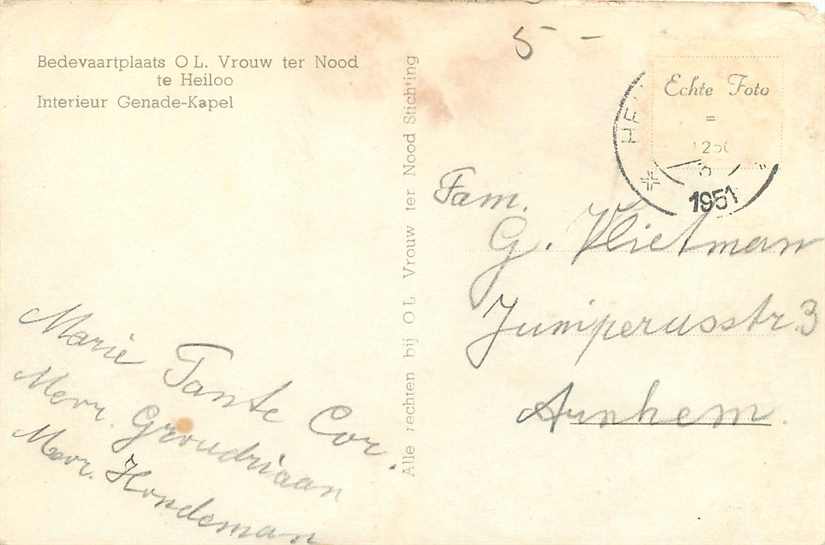 Bedevaartplaats O L. Vrouw ter Nood
te Heiloo
Interieur Genade-Kapel
Alle rechten bij O L Vrouw ter Nood Stichting
5 -
Echte Foto
=
1951
Fam.
G. Vlietman
Juniperusstr. 3
Arnhem.
Marie Tante Cor.
Mevr. Groudriaan
Mevr. Hondeman